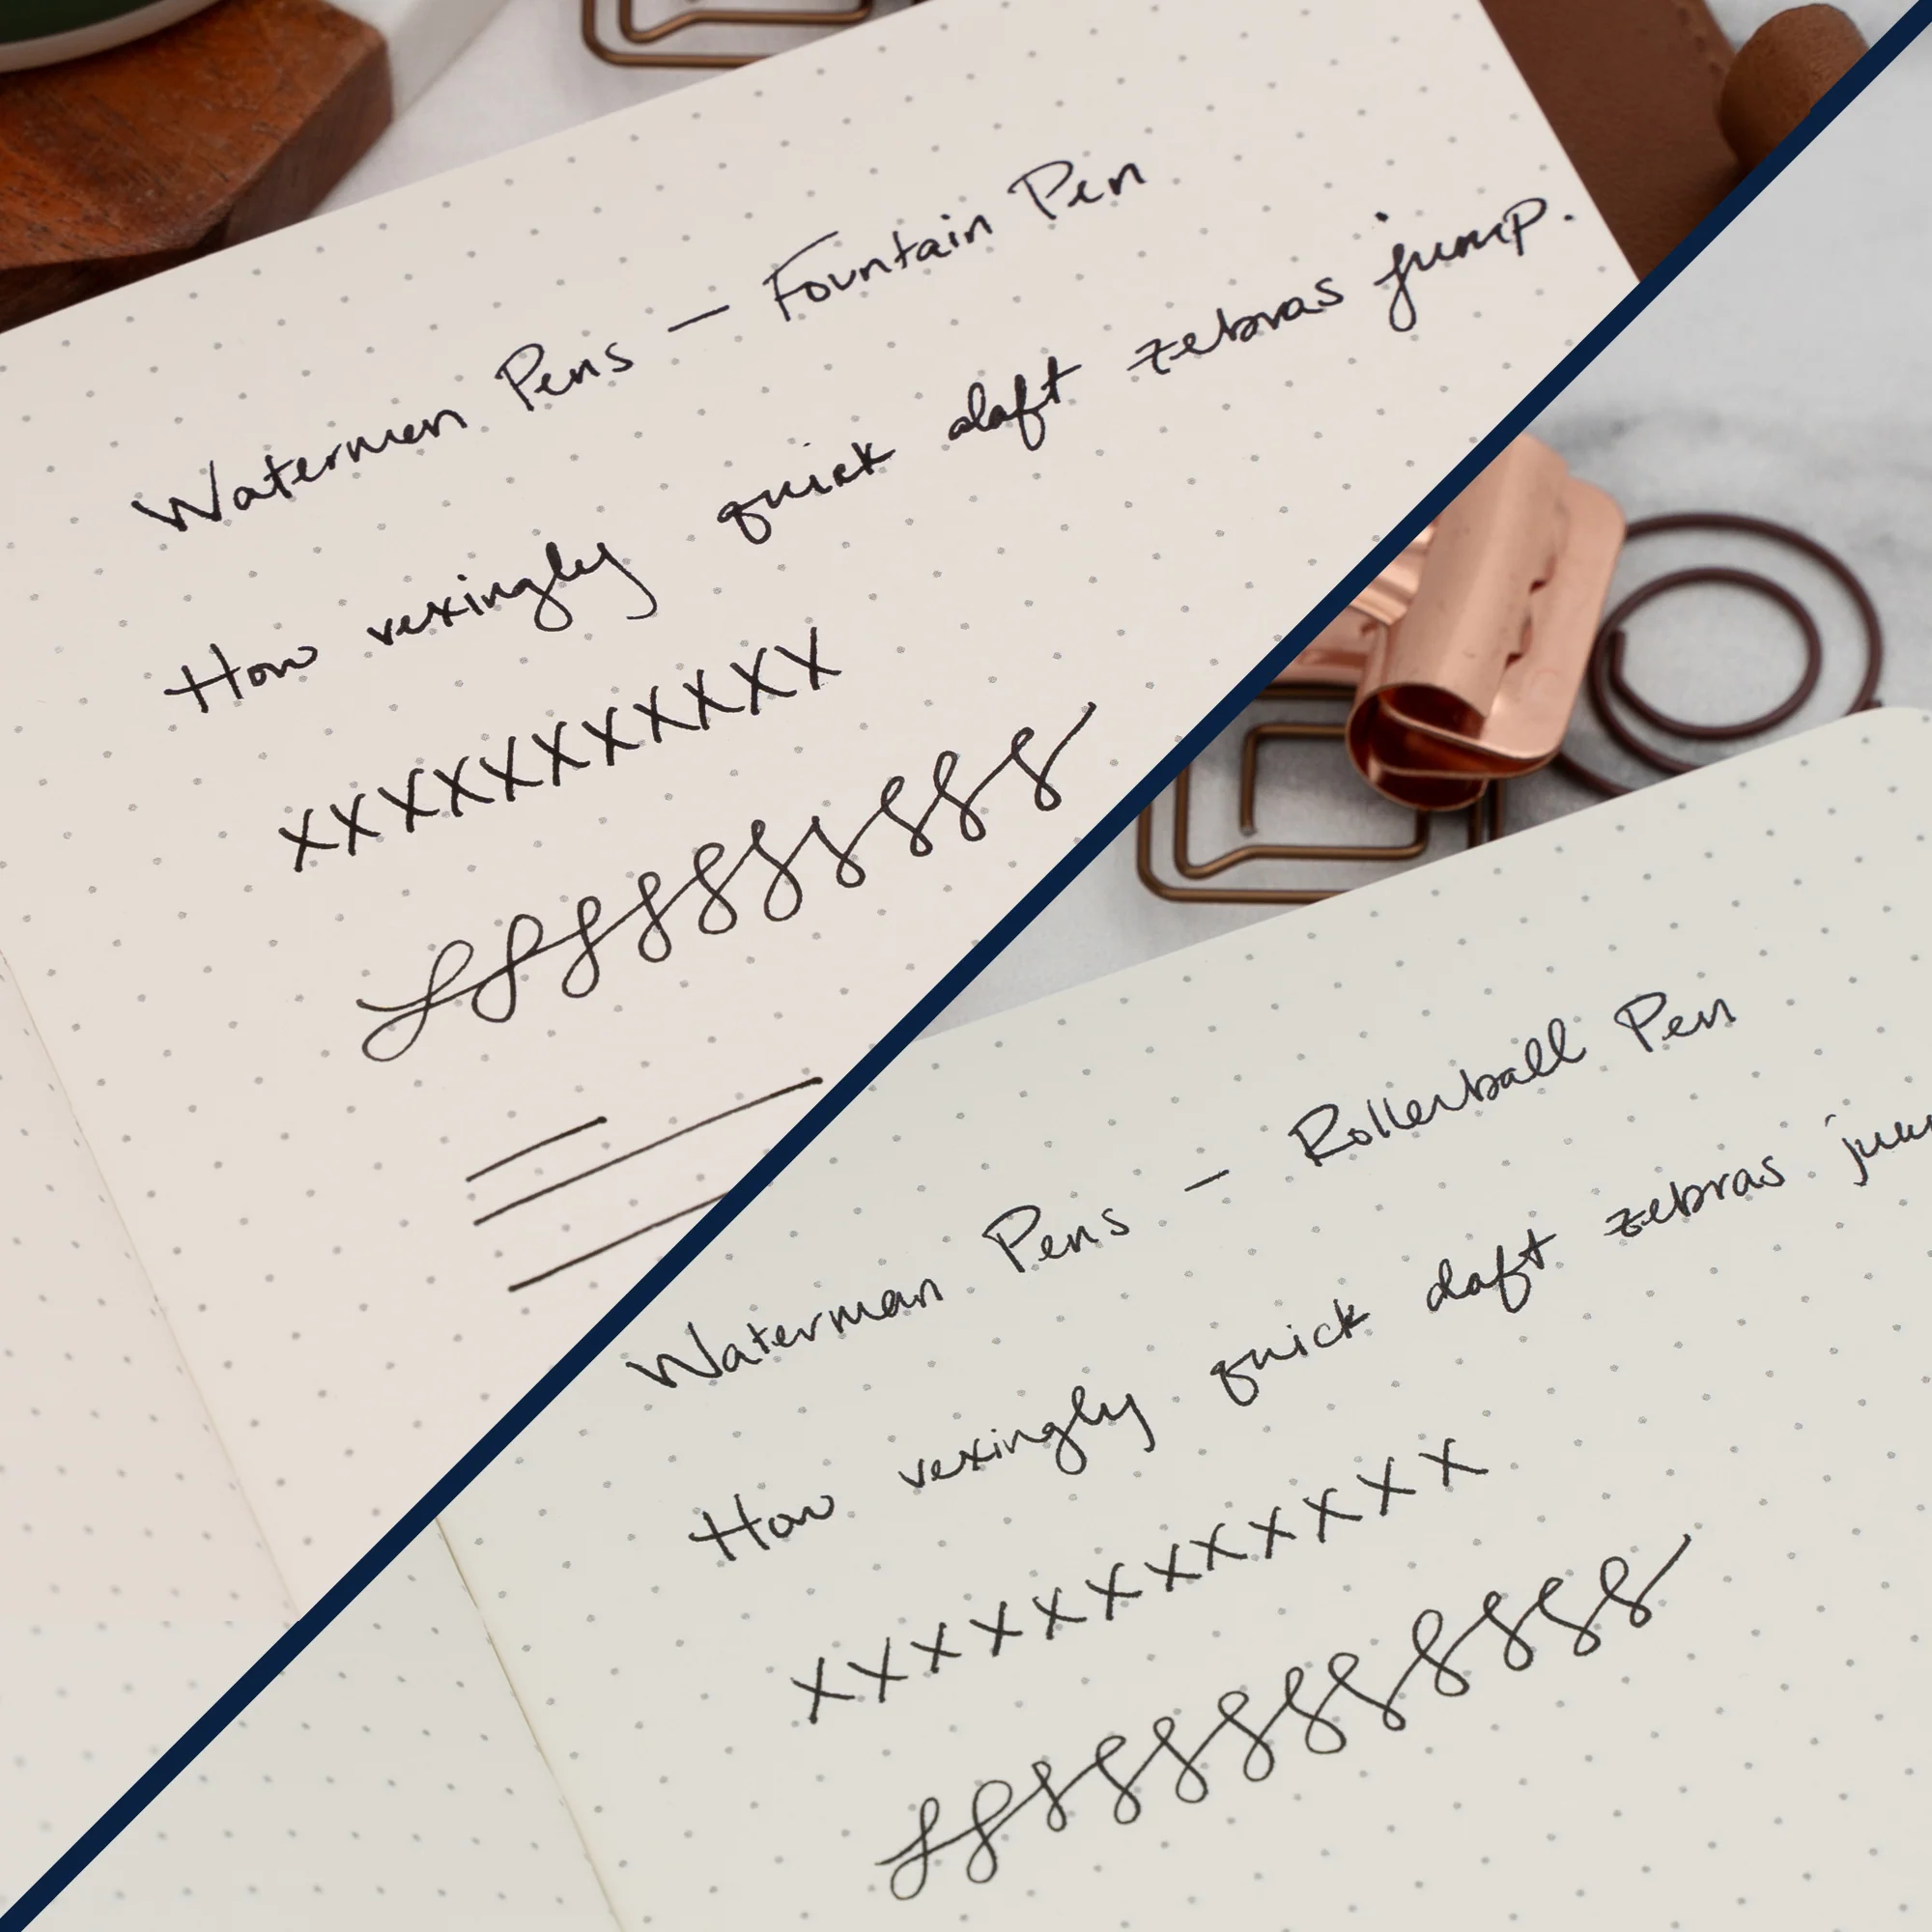 Waterman Pens — Fountain Pen
How vexingly quick daft zebras jump.
xxxxxxxxxxx
Waterman Pens - Rollerball Pen
How vexingly quick daft zebras
xxxxxxxxxxxx